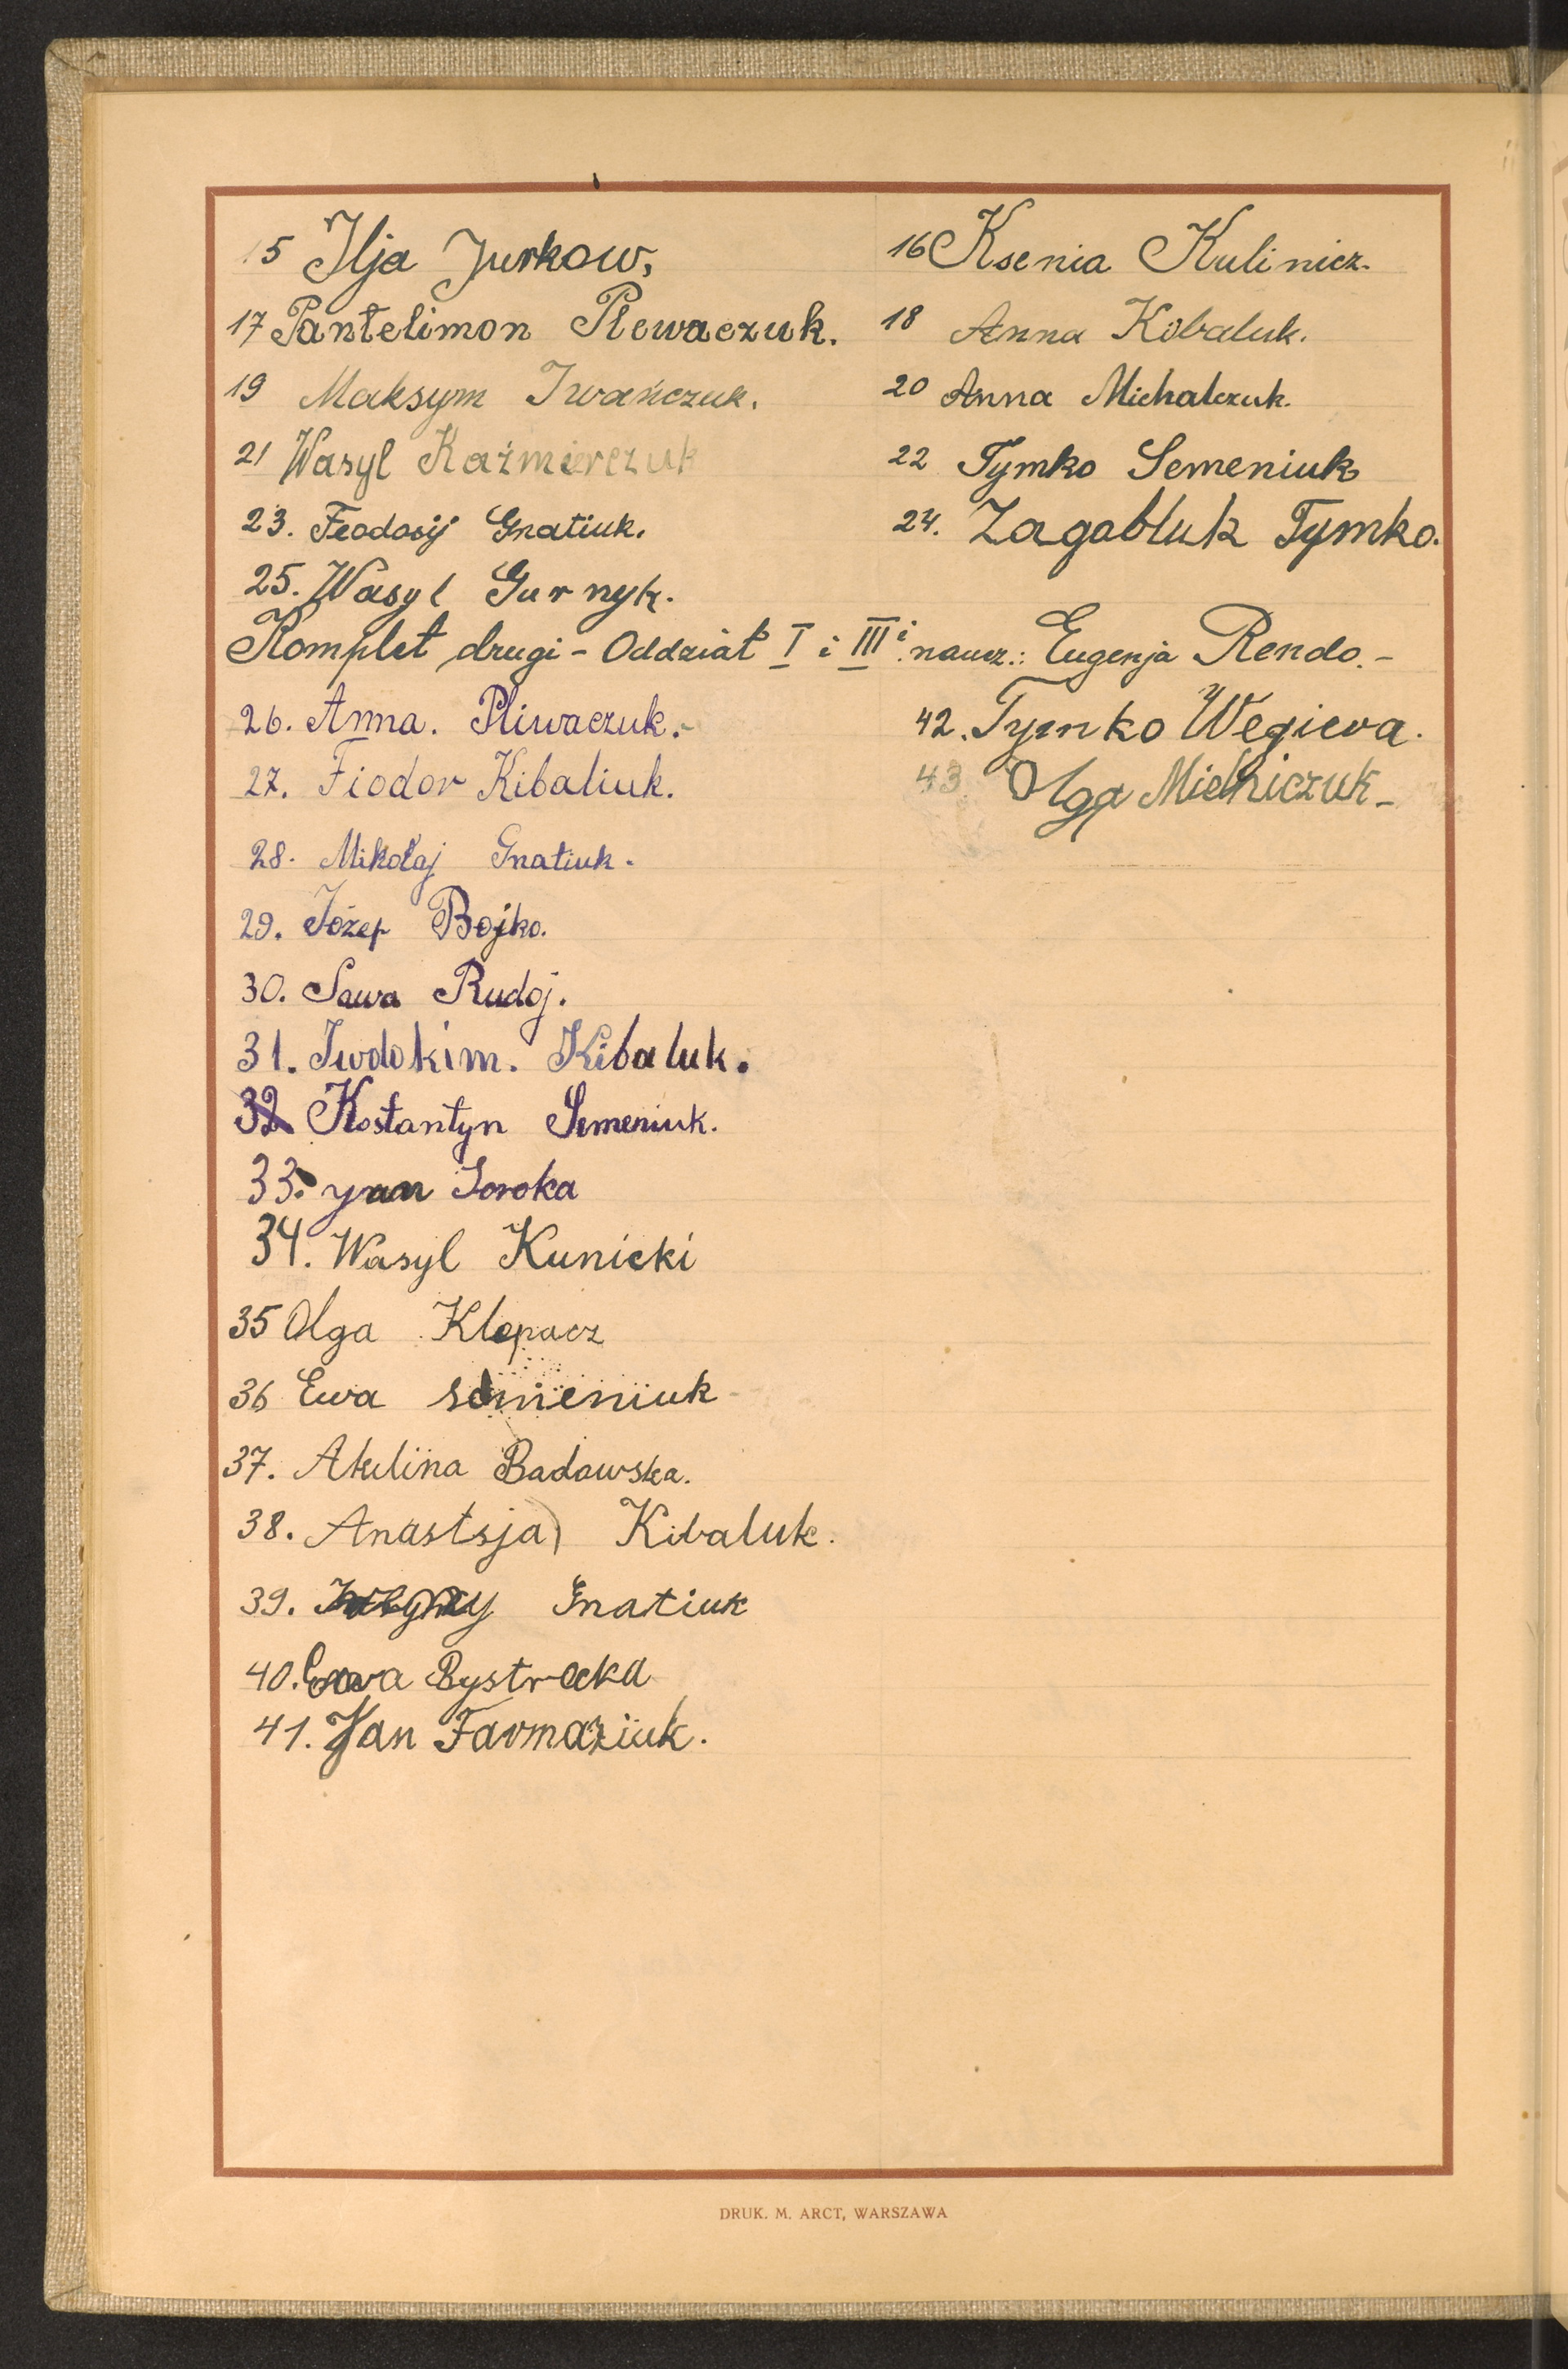 15 Ilja Jurkow,
16 Ksenia Kulinicz.
17 Pantelimon Plewaczuk.
18 Anna Kibaluk.
19 Maksym Iwańczuk.
20 Anna Michalczuk.
21 Wasyl Kaźmierczuk
22 Tymko Semeniuk
23. Feodosij Gnatiuk.
24. Zagabluk Tymko.
25. Wasyl Gurnyk.
Komplet drugi - Oddział I i III i naucz.: Eugenja Rendo. -
26. Anna. Pliwaczuk. -
27. Fiodor Kibaliuk.
28. Mikołaj Gnatiuk.
29. Józef Bojko.
30. Sawa Rudoj.
31. Iwdokim. Kibaluk.
32 Kostantyn Semeniuk.
33. yan Soroka
34. Wasyl Kunicki
35 Olga Klepacz
36 Ewa Semeniuk
37. Akulina Badowska.
38. Anastsja Kibaluk.
39. Gnatiuk
40. Ewa Bystracka
41. Jan Farmaziuk.
42. Tymko Wegiera.
43 Olga Mielniczuk -
DRUK. M. ARCT, WARSZAWA